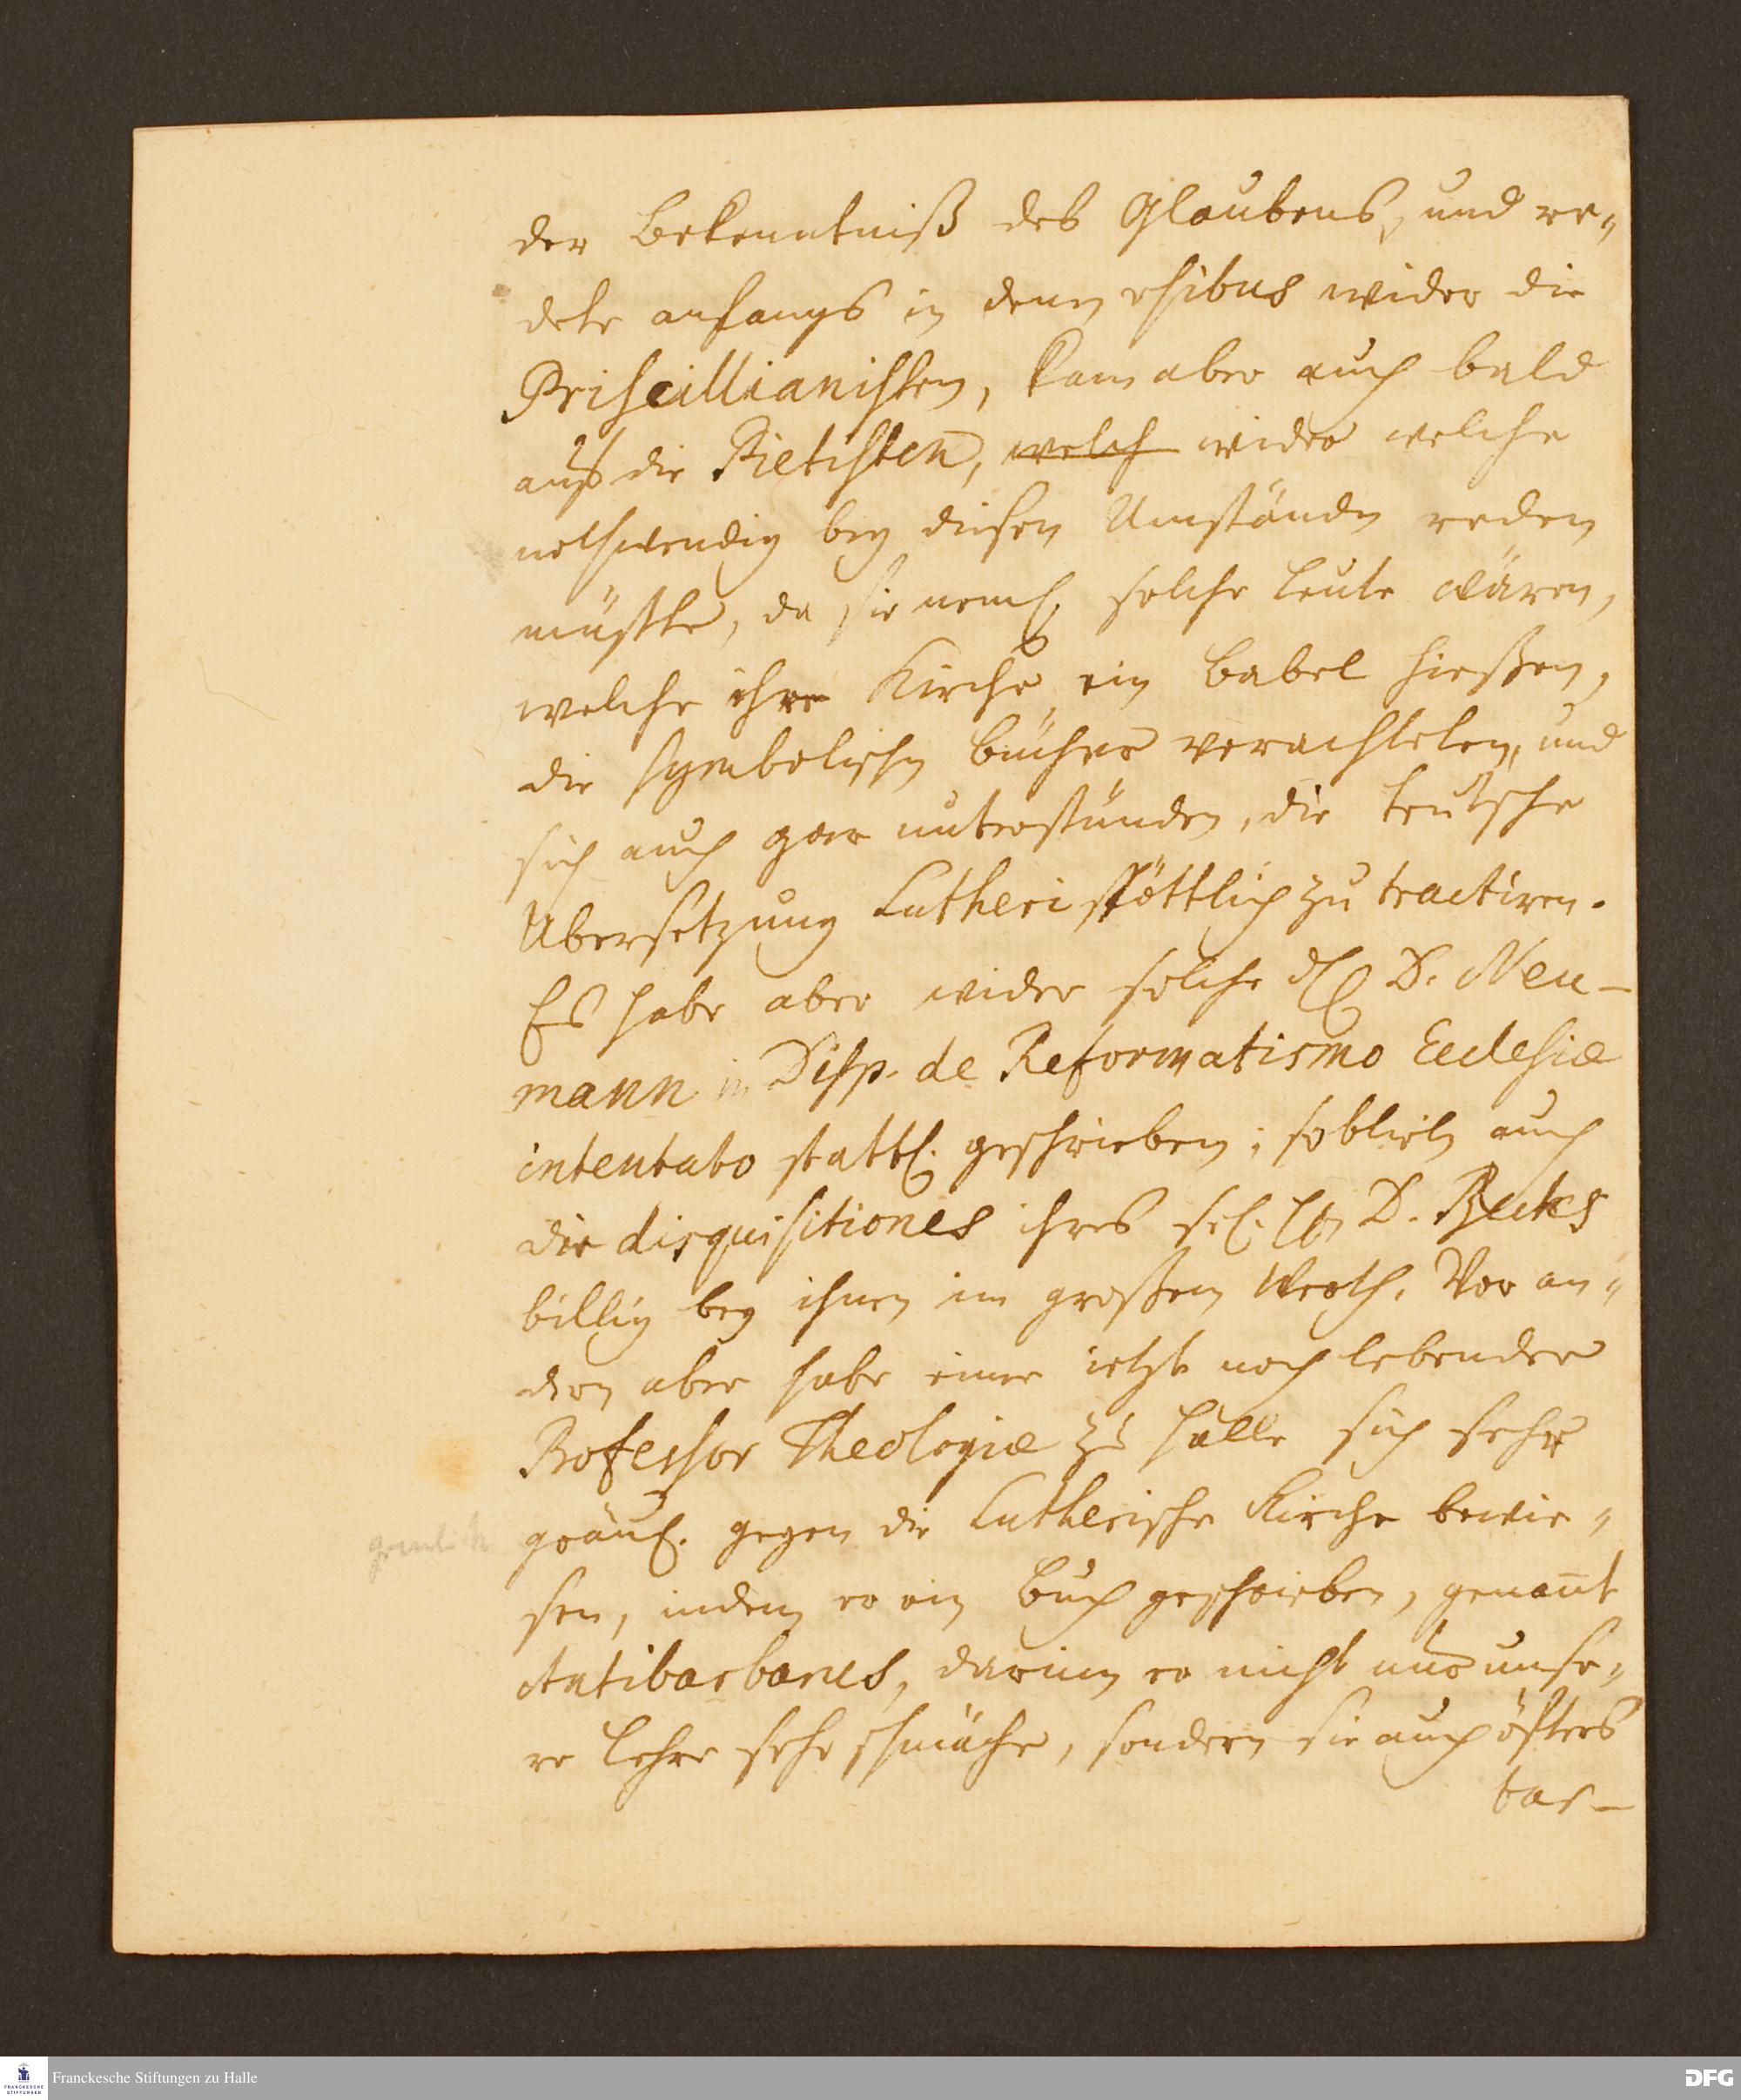 der Bekenntniß des Glaubens, und re„
dete anfangs in denen thesibus wider die
Priscillianisten, kam aber auch bald
auf die Pietisten, welch wider welche
nothwendig bey diesen Umständen reden
müste, da sie neml. solche Leute wären,
welche ihre Kirche ein Babel hießen,
die symbolischen Bücher verachteten, und
sich auch gar unterstünden, die teutsche
Übersetzung Lutheri spöttlich zu tractiren.
Es habe aber wider solche D. Neu-
mann in Disp. de Reformatismo Ecclesiæ
intentato stattl. geschrieben; so blieben auch
die disquisitiones ihres sel. D. Becks
billig bey ihnen im großen Werth. Vor an„
dern aber habe einer ietzt noch lebender
Professor Theologiæ zu Halle sich sehr
gräul. gegen die Lutherische Kirche bewie„
sen, indem er ein Buch geschrieben, genan̄t
Antibarbarus, darinn er nicht nur unse„
re Lehre sehr schmähe, sondern sie auch öffters
bar-
Franckesche Stiftungen zu Halle
FRANCKESCHE
STIFTUNGEN
DFG